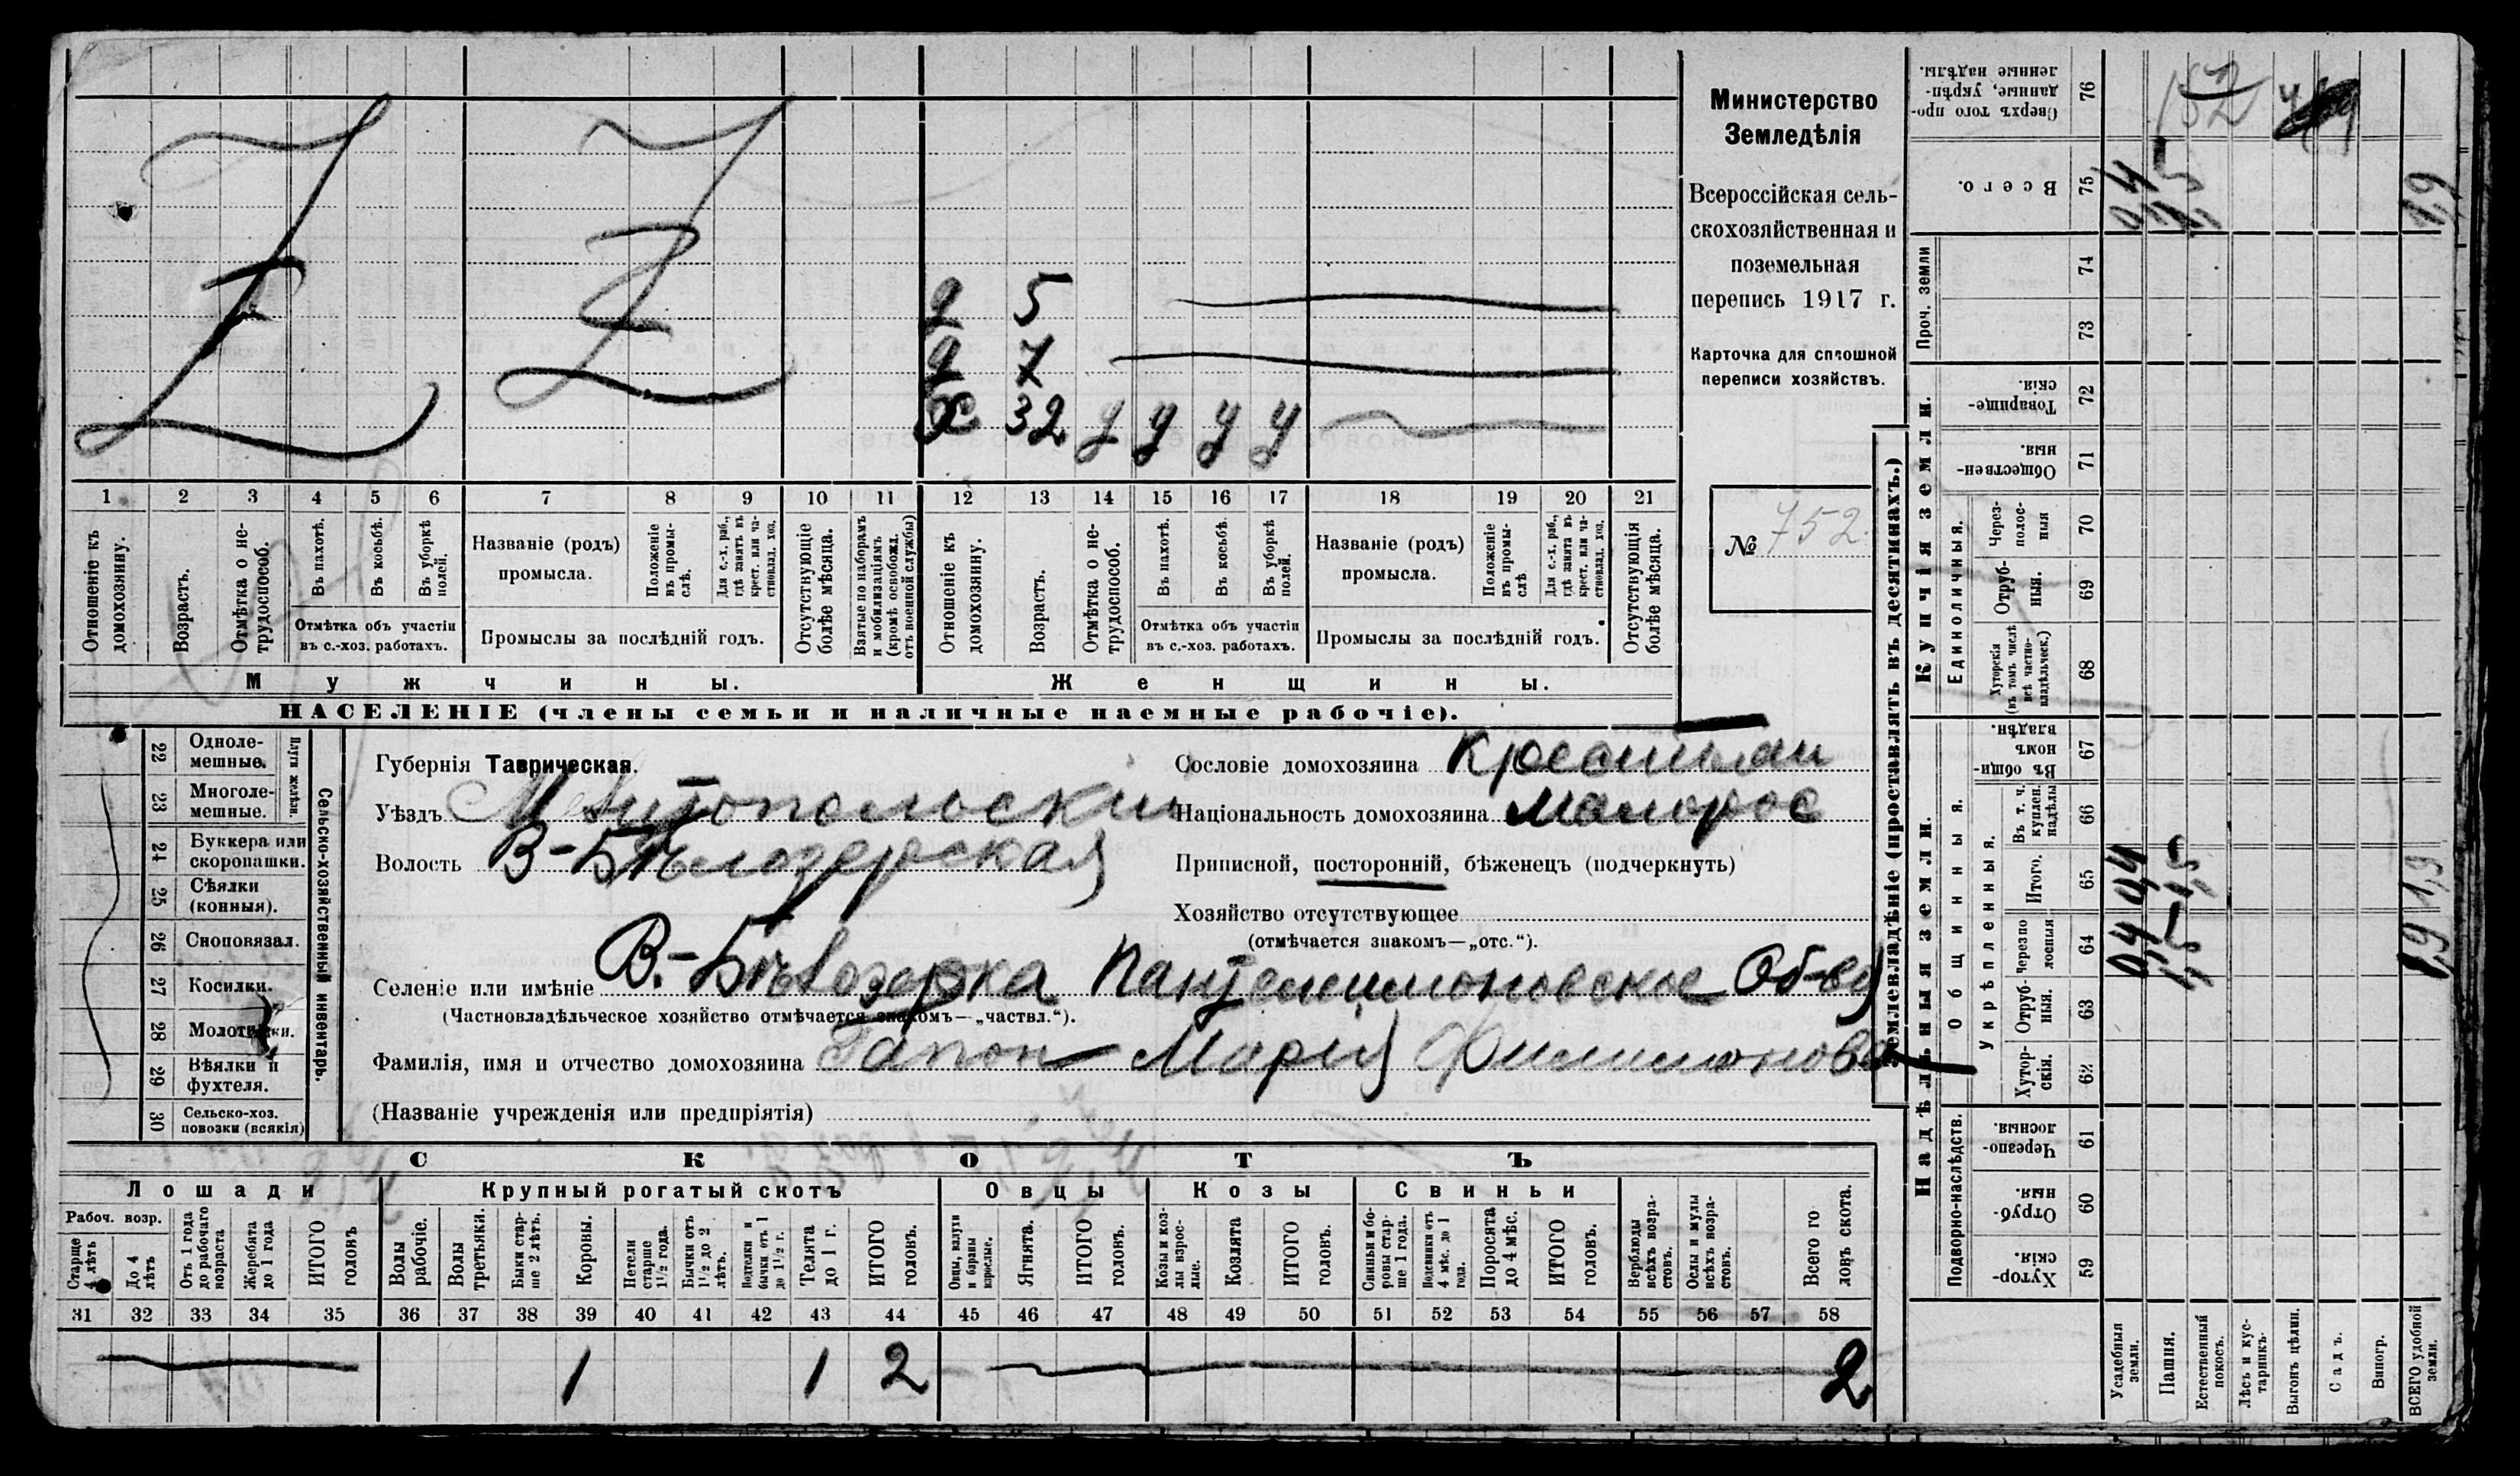 Министерство
Земледѣлія
Всероссійская сель-
скохозяйственная и
поземельная
перепись 1917 г.
Карточка для сплошной
переписи хозяйствъ.
№ 752.
д 5
д 7
х 32 у у у у
1 2 3 4 5 6 7 8 9 10 11 12 13 14 15 16 17 18 19 20 21
Отношеніе къ домохозяину.
Возрастъ.
Отмѣтка о не-трудоспособ.
Въ пахотѣ.
Въ косьбѣ.
Въ уборкѣ полей.
Отмѣтка объ участіи
въ с.-хоз. работахъ.
Названіе (родъ)
промысла.
Положеніе въ промы-слѣ.
Для с.-х. раб., гдѣ занятъ въ крест. или ча-стновлад. хоз.
Промыслы за послѣдній годъ.
Отсутствующіе болѣе мѣсяца.
Взятые по наборамъ и мобилизаціямъ (кромѣ освобожд. отъ военной службы)
Отношеніе къ домохозяину.
Возрастъ.
Отмѣтка о не-трудоспособ.
Въ пахотѣ.
Въ косьбѣ.
Въ уборкѣ полей.
Отмѣтка объ участіи
въ с.-хоз. работахъ.
Названіе (родъ)
промысла.
Положеніе въ промы-слѣ
Для с.-х. раб., гдѣ занята въ крест. или ча-стновлад. хоз.
Промыслы за послѣдній годъ.
Отсутствующія болѣе мѣсяца.
Мужчины.
Женщины.
НАСЕЛЕНІЕ (члены семьи и наличные наемные рабочіе).
Сельско-хозяйственный инвентарь.
Плуги желѣзн.
22 Одноле-мешные.
23 Многоле-мешные.
24 Буккера или скоропашки.
25 Сѣялки (конныя).
26 Сноповязал.
27 Косилки.
28 Молотилки.
29 Вѣялки и фухтеля.
30 Сельско-хоз. повозки (всякія)
Губернія Таврическая.
Уѣздъ Мелитопольскій
Волость В-Бѣлозерская
Сословіе домохозяина Крестьян
Національность домохозяина малорос
Приписной, посторонній, бѣженецъ (подчеркнуть)
Хозяйство отсутствующее
(отмѣчается знакомъ—„отс.“).
Селеніе или имѣніе В.-Бѣлозерка Пантелеимоновское Об-во
(Частновладѣльческое хозяйство отмѣчается знакомъ—„частвл.“).
Фамилія, имя и отчество домохозяина Гапон Марія Филимонова
(Названіе учрежденія или предпріятія)
СКОТЪ
Лошади
Крупный рогатый скотъ
Овцы
Козы
Свиньи
Рабоч. возр.
Старше 4 лѣтъ
До 4 лѣтъ
Отъ 1 года до рабочаго возраста
Жеребята до 1 года
ИТОГО головъ
Волы рабочіе.
Волы третьяки.
Быки стар-ше 2 лѣтъ.
Коровы.
Петели старше 1½ года.
Бычки отъ 1½ до 2 лѣтъ.
Подтелки и бычки отъ 1 до 1½ г.
Телята до 1 г.
ИТОГО головъ.
Овцы, валухи и бараны взрослые.
Ягнята.
ИТОГО головъ.
Козы и коз-лы взрос-лые.
Козлята
ИТОГО головъ.
Свиньи и бо-ровы стар-ше 1 года.
Подсвинки отъ 4 мѣс. до 1 года.
Поросята до 4 мѣс.
ИТОГО головъ.
Верблюды всѣхъ возра-стовъ.
Ослы и мулы всѣхъ возра-стовъ.
Всего го ловъ скота.
31 32 33 34 35 36 37 38 39 40 41 42 43 44 45 46 47 48 49 50 51 52 53 54 55 56 57 58
1 1 2 2
Землевладѣніе (проставлять въ десятинахъ.)
Надѣльныя земли.
Купчія земли.
Проч. земли
Подворно-наслѣдств.
Общинныя.
Укрѣпленныя.
Единоличныя.
Сверхъ того про-данные, укрѣп-ленные надѣлы. 76
Всего. 75 0,4 1,5 1,9
74
73
Товарище-скія. 72
Обществен-ныя. 71
Через-полос-ныя 70
Отруб-ныя. 69
Хуторскія (въ томъ числѣ всѣ частно-владѣльческ.) 68
Въ общин-номъ владѣн. 67
Въ т. ч. куплен. надѣлы 66
Итого. 65 0,4 1,5 1,9
Черезпо лосныя 64 0,4 1,5 1,9
Отруб-ныя. 63
Хутор-скія. 62
Черезпо-лосныя. 61
Отруб-ныя. 60
Хутор-скія. 59
Усадебныя земли.
Пашня.
Естественный покосъ.
Лѣсъ и кус-тарникъ.
Выгонъ цѣлин.
Садъ.
Виногр.
ВСЕГО удобной земли.
152